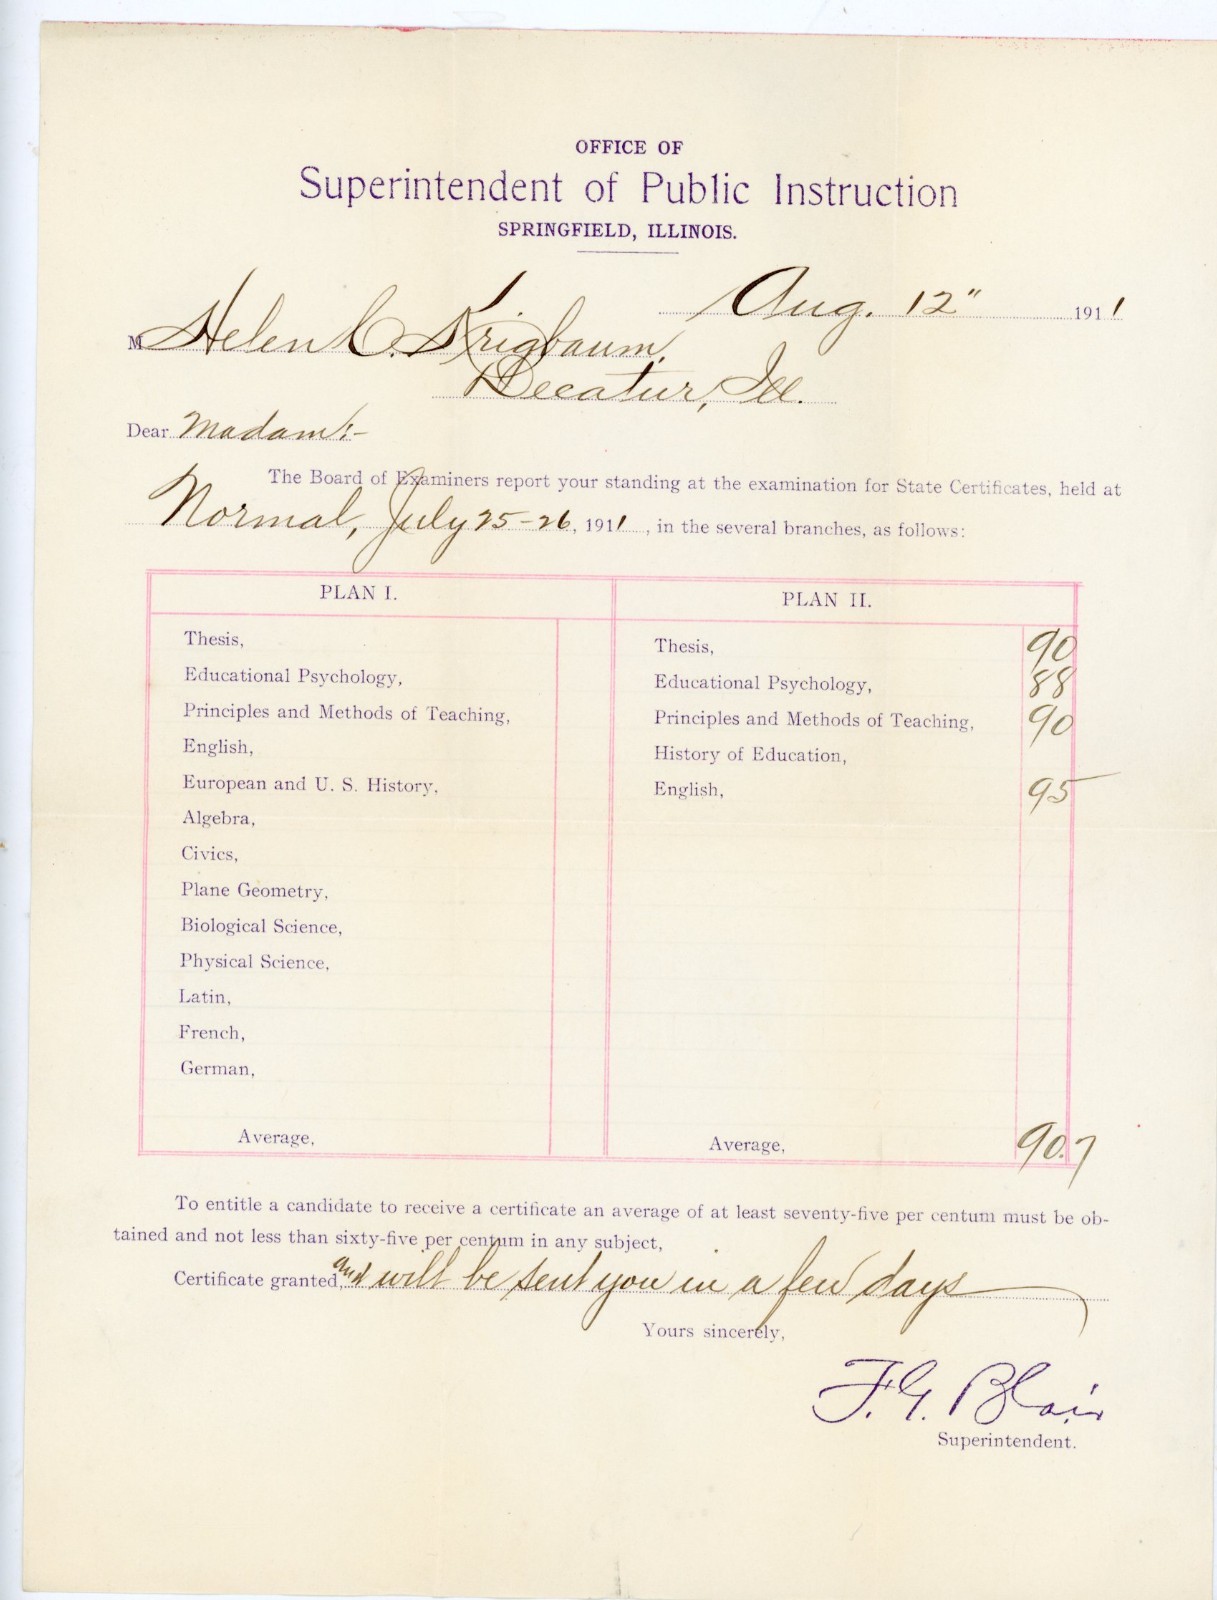 OFFICE OF
Superintendent of Public Instruction
SPRINGFIELD, ILLINOIS.
Aug. 12" 1911
M Helen C. Krigbaum,
Decatur, Ill.
Dear Madam:-
The Board of Examiners report your standing at the examination for State Certificates, held at
Normal, July 25-26, 1911, in the several branches, as follows:
PLAN I.
Thesis,
Educational Psychology,
Principles and Methods of Teaching,
English,
European and U. S. History,
Algebra,
Civics,
Plane Geometry,
Biological Science,
Physical Science,
Latin,
French,
German,
Average,
PLAN II.
Thesis, 90
Educational Psychology, 88
Principles and Methods of Teaching, 90
History of Education,
English, 95
Average, 90.7
To entitle a candidate to receive a certificate an average of at least seventy-five per centum must be ob-
tained and not less than sixty-five per centum in any subject,
Certificate granted, and will be sent you in a few days
Yours sincerely,
F. G. Blair
Superintendent.